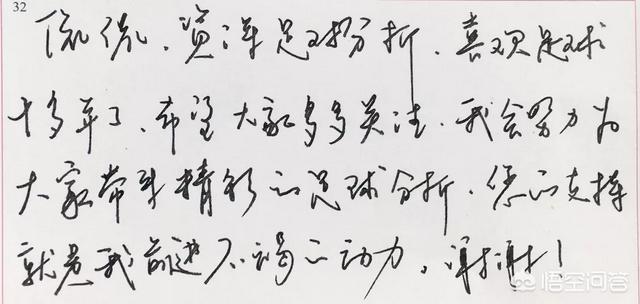 32
侃侃，资深足球分析，喜欢足球
十多年了，希望大家多多关注，我会努力为
大家带来精彩的足球分析，您的支持
就是我前进不竭的动力，谢谢！
悟空问答